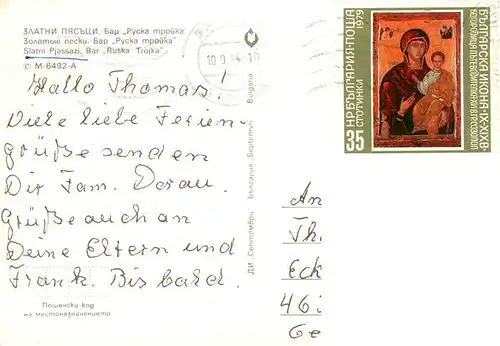 ЗЛАТНИ ПЯСЪЦИ. Бар „Руска тройка"
Золотые пески. Бар „Руска тройка"
Slatni Pjassazi, Bar "Ruska Trojka"
© М 6492-А
Hallo Thomas!
Viele liebe Ferien-
grüße senden
Dir Fam. Dorau.
Grüße auch an
Deine Eltern und
Frank. Bis bald.
Пощенски код
на местоназначението
ДИ „Септември" България Septemvri Bulgaria
НР БЪЛГАРИЯ·ПОЩА
1979
СТОТИНКИ
35
БЪЛГАРСКА ИКОНА·IX-XIX В·
An
Th.
Eck
46
Ge